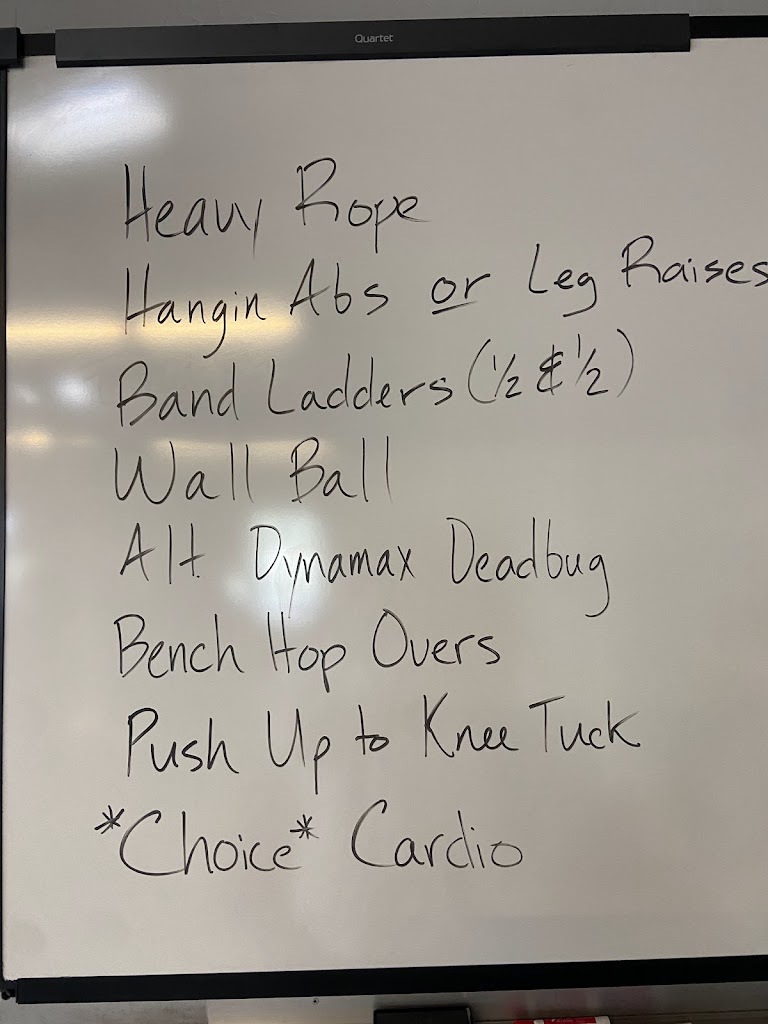 Quartet
Heavy Rope
Hangin Abs or Leg Raises
Band Ladders (1/2 & 1/2)
Wall Ball
Alt Dynamax Deadbug
Bench Hop Overs
Push Up to Knee Tuck
*Choice* Cardio